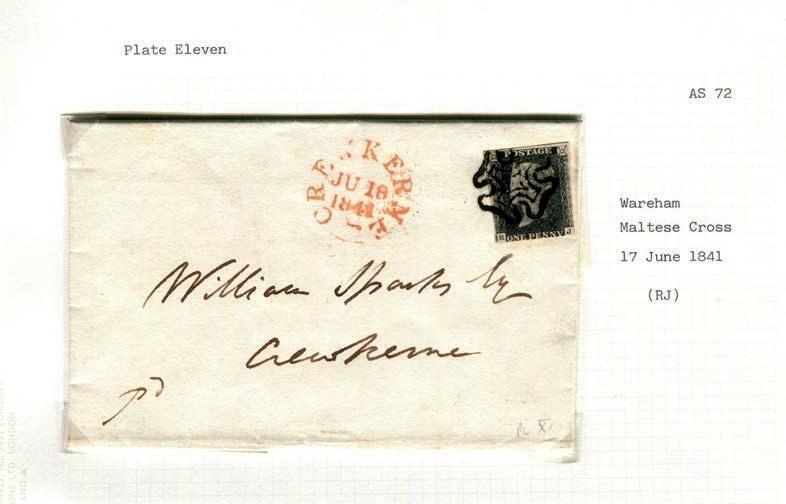 Plate Eleven
AS 72
CREWKERNE
JU 18
1841
POSTAGE
R ONE PENNY J
Wareham
Maltese Cross
17 June 1841
(RJ)
William Sparks Esq
Crewkerne
pd
PL XI
LTD. LONDON